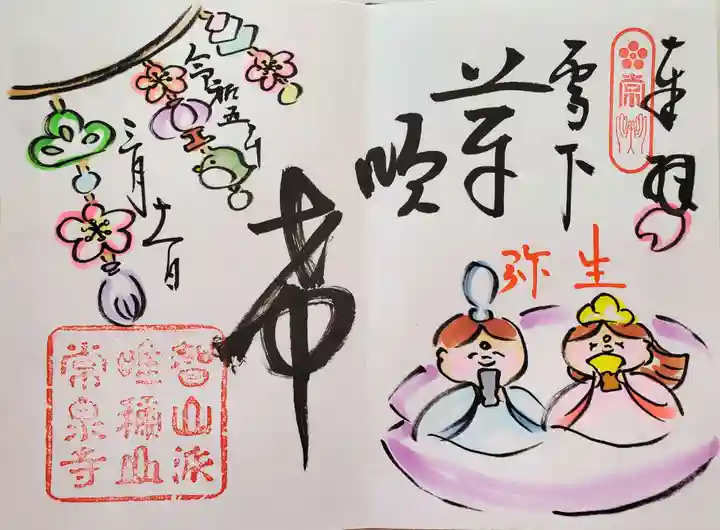 奉拝
常
雪下
芽
吹
弥生
希
令和五年
三月十一日
智山派
唯稱山
常泉寺